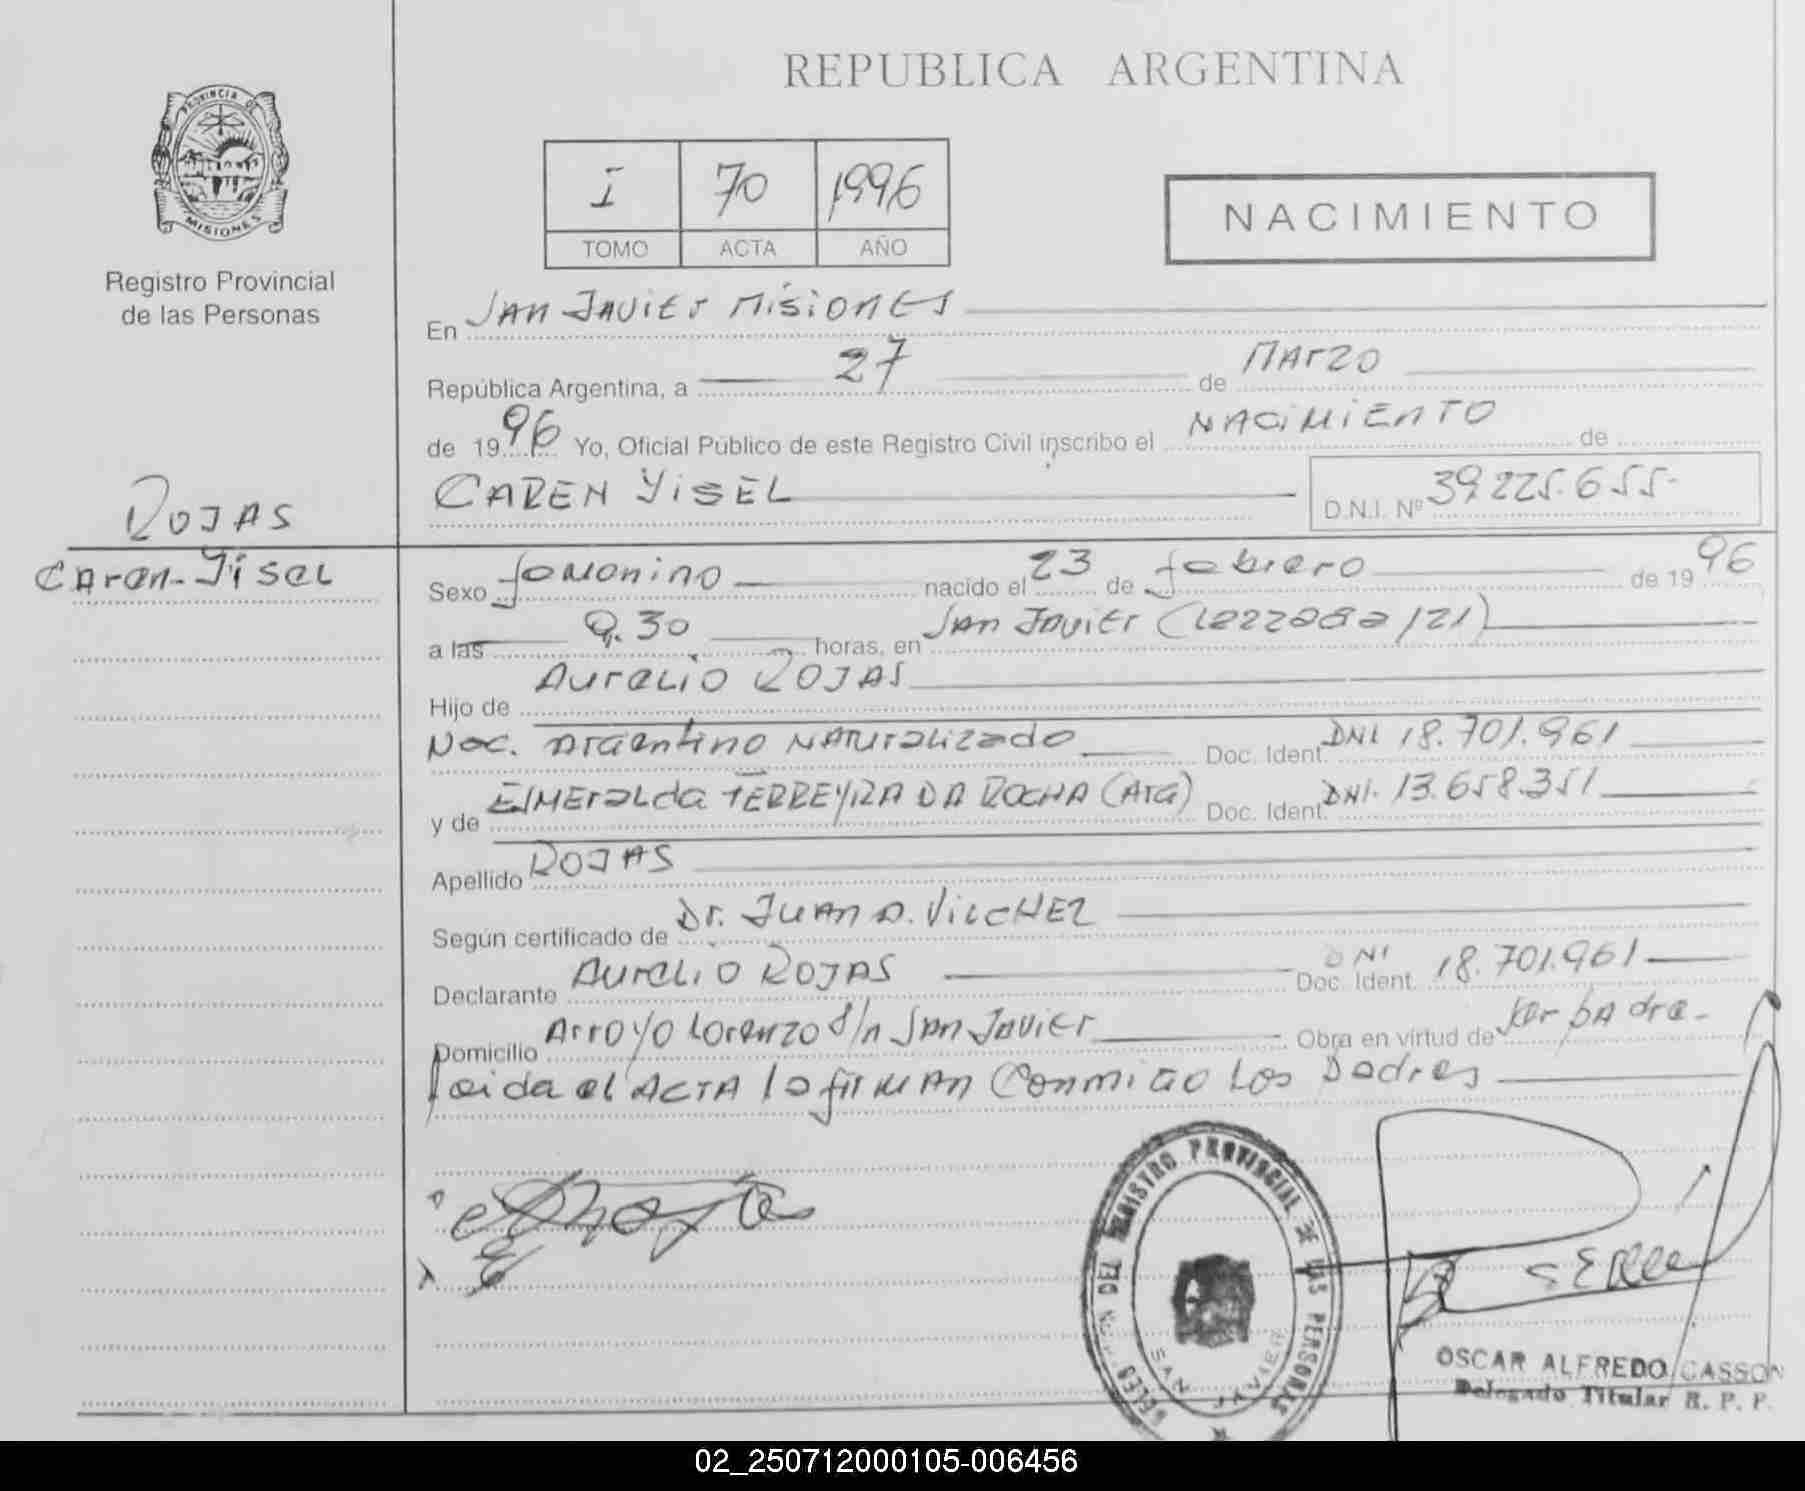 REPUBLICA ARGENTINA
PROVINCIA DE
MISIONES
Registro Provincial
de las Personas
I 70 1996
TOMO ACTA AÑO
NACIMIENTO
En SAN JAVIER MISIONES
República Argentina, a 27 de MARZO
de 1996 Yo, Oficial Público de este Registro Civil inscribo el NACIMIENTO de
CAREN YISEL D.N.I. Nº 39.225.655-
ROJAS
Caren-Yisel
Sexo femenino nacido el 23 de febrero de 1996
a las 9.30 horas, en SAN JAVIER
Hijo de Aurelio ROJAS
Nac. Argentino Naturalizado Doc. Ident. DNI 18.701.961
y de Esmeralda FERREYRA DA ROCHA (Arg) Doc. Ident. DNI. 13.658.351
Apellido ROJAS
Según certificado de Dr. JUAN A. VILCHEZ
Declarante Aurelio ROJAS Doc. Ident. DNI 18.701.961
Domicilio Arroyo Lorenzo s/n SAN JAVIER Obra en virtud de ser padre-
Leida el ACTA la firman conmigo los Padres
REGISTRO PROVINCIAL DE LAS PERSONAS
SAN JAVIER
OSCAR ALFREDO CASSON
Delegado Titular R. P. P.
02_250712000105-006456